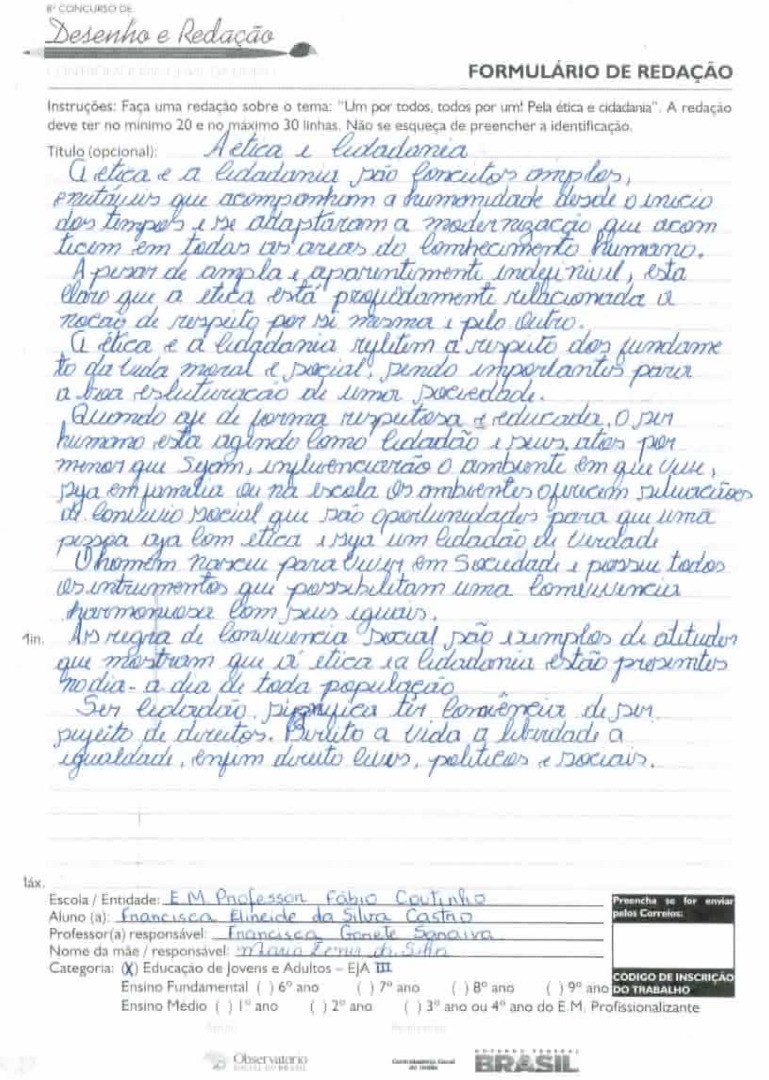 8º CONCURSO DE
Desenho e Redação
FORMULÁRIO DE REDAÇÃO
Instruções: Faça uma redação sobre o tema: "Um por todos, todos por um! Pela ética e cidadania". A redação
deve ter no mínimo 20 e no máximo 30 linhas. Não se esqueça de preencher a identificação.
Título (opcional): A etica e Cidadania
A etica e a Cidadania são Conceitos amplos,
que acompanham a humanidade desde o inicio
dos tempos e se adaptaram a modernização que acom
ticem em todas as areas do Comhecimento humano.
A pesar de ampla e aparentimente indefinivel, esta
Claro que a etica está relacionada a
nocão de respeito por si mesma e pelo outro.
A ética e a Cidadania refletem a respeito dos fundame
to da vida moral e social, sendo importantes para
a boa estuturacão de uma sociedade.
Quando aje de forma respeitosa e educada, O ser
humano esta agindo Como Cidadão e seus atos por
menor que Sejam, influenciarão o ambiente em que vive,
seja em familia ou na escola Os ambientes oferecem situacões
de Convivio social que são oportunidades para que uma
pessoa aja Com etica e seja um Cidadão de Verdade
O homem nasceu para Viver em Sociedade e possue todos
os intrumentos que possibilitam uma Convivencia
harmoniosa Com seus iguais.
1in. As regra de Convivência social são exemplos de atitudes
que mostram que a ética e a Cidadania estão presentes
no dia - a dia de toda população
Ser Cidadão, significa ter Conciência de ser
sujeito de direitos. Direito a vida a liberdade a
igualdade, enfim direito Civis, politicos e sociais.
1áx.
Escola / Entidade: E.M Professor Fábio Coutinho
Aluno (a): Francisca Elineide da Silva Castro
Professor(a) responsável: Francisca Gorete Saraiva
Nome da mãe / responsável: Maria da Silva
Categoria: (X) Educação de Jovens e Adultos – EJA III
Ensino Fundamental ( ) 6º ano ( ) 7º ano ( ) 8º ano ( ) 9º ano
Ensino Médio ( ) 1º ano ( ) 2º ano ( ) 3º ano ou 4º ano do E.M. Profissionalizante
Preencha se for enviar
pelos Correios:
CÓDIGO DE INSCRIÇÃO
DO TRABALHO
Observatório
SOCIAL DO BRASIL
Controladoria-Geral
da União
GOVERNO FEDERAL
BRASIL